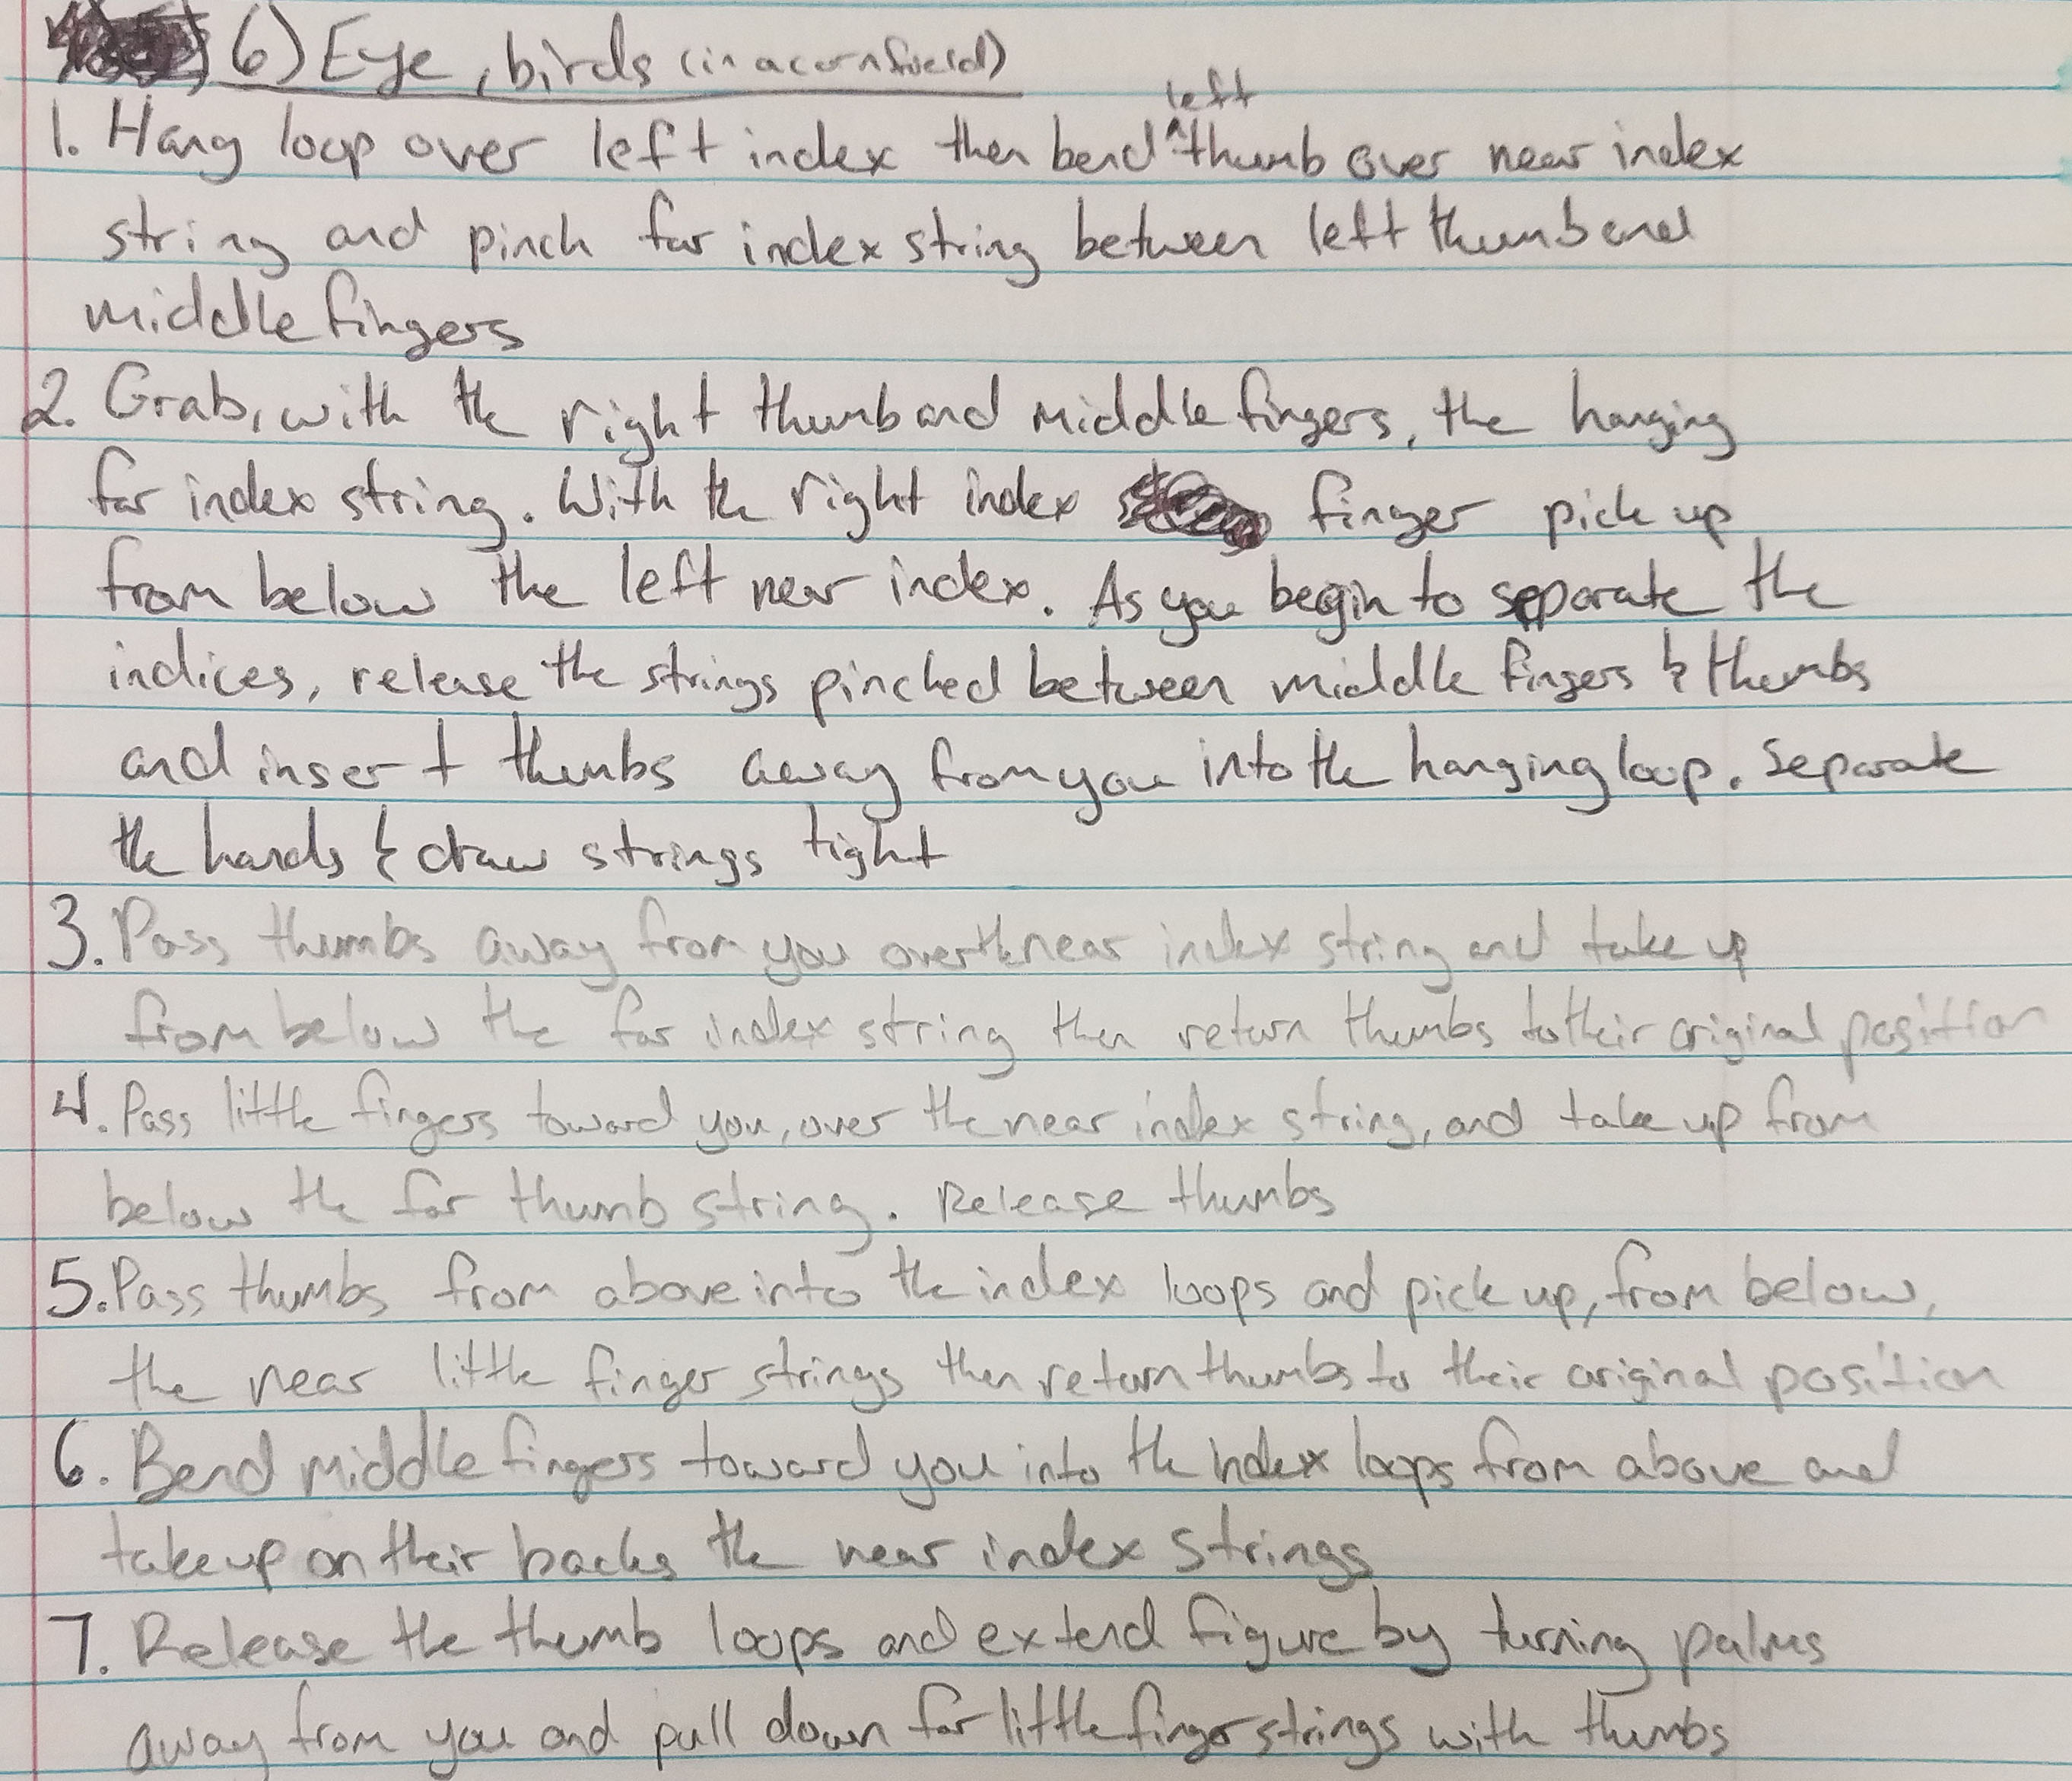 6) Eye, birds (in a cornfueld)
left
1. Hang loop over left index then bend ^ thumb over near index
string and pinch far index string between left thumb and
middle fingers
2. Grab, with the right thumb and middle fingers, the hanging
far index string. With the right index finger pick up
from below the left near index. As you begin to separate the
indices, release the strings pinched between middle fingers & thumbs
and insert thumbs away from you into the hanging loop. Separate
the hands & draw strings tight
3. Pass thumbs away from you over the near index string and take up
from below the far index string then return thumbs to their original position
4. Pass little fingers toward you, over the near index string, and take up from
below the far thumb string. Release thumbs
5. Pass thumbs from above into the index loops and pick up, from below,
the near little finger strings then return thumbs to their original position
6. Bend middle fingers toward you into the index loops from above and
take up on their backs the near index strings
7. Release the thumb loops and extend figure by turning palms
away from you and pull down far little finger strings with thumbs